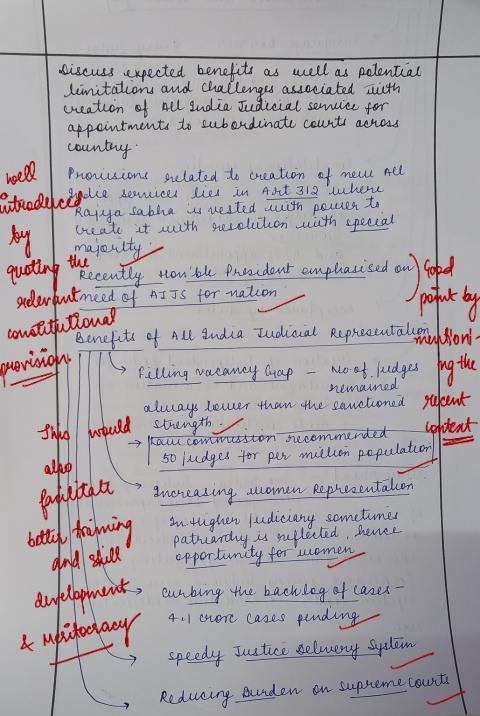 Discuss expected benefits as well as potential
limitations and challenges associated with
creation of All India Judicial service for
appointments to subordinate courts across
country.
Provisions related to creation of new All
India services lies in Art 312 where
Rajya Sabha is vested with power to
create it with resolution with special
majority.
Recently Hon'ble President emphasised on
need of AIJS for nation.
well
introduced
by
quoting the
relevant
constitutional
provision
Good
point by
mentioni-
ng the
recent
context
Benefits of All India Judicial Representation
Filling vacancy Gap - No. of judges
remained
always lower than the sanctioned
strength.
→ Law commission recommended
50 judges for per million population
Increasing women Representation
In Higher Judiciary sometimes
patriarthy is reflected, hence
opportunity for women
Curbing the backlog of cases -
4.1 crore cases pending
Speedy Justice Delivery System
Reducing Burden on Supreme Courts
This would
also
facilitate
better training
and skill
development
& Meritocracy